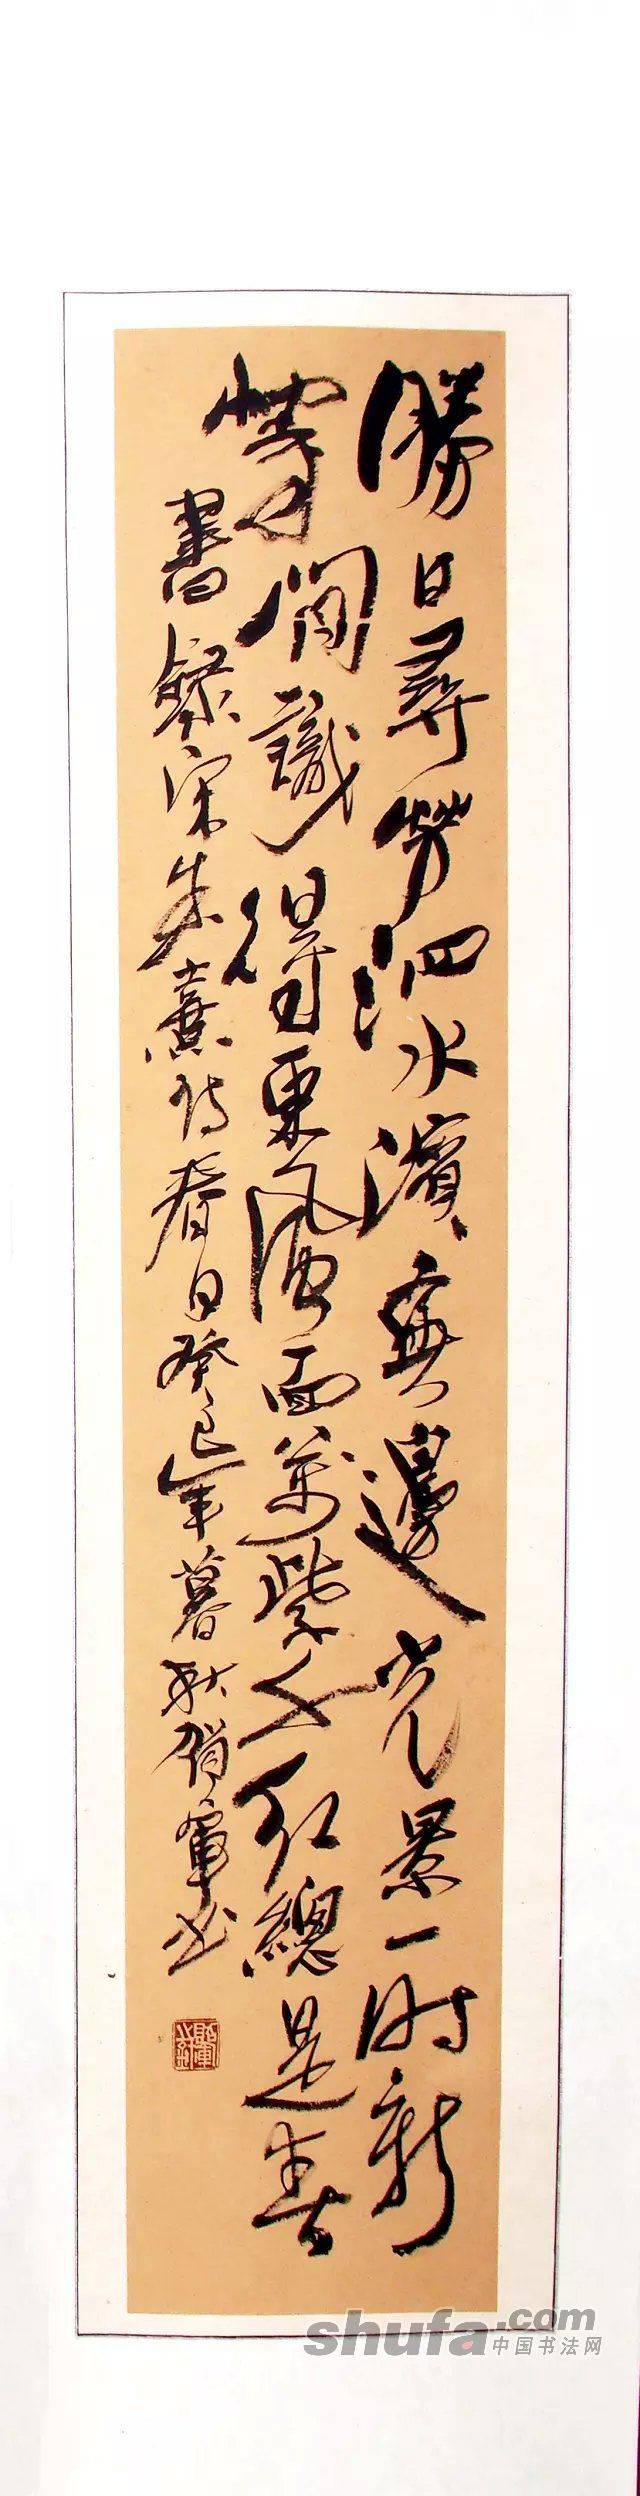 勝日尋芳泗水濱無邊光景一時新
等閒識得東風面萬紫千紅總是春
書錄宋朱熹詩春日癸巳年暮秋
shufa.com
中国书法网